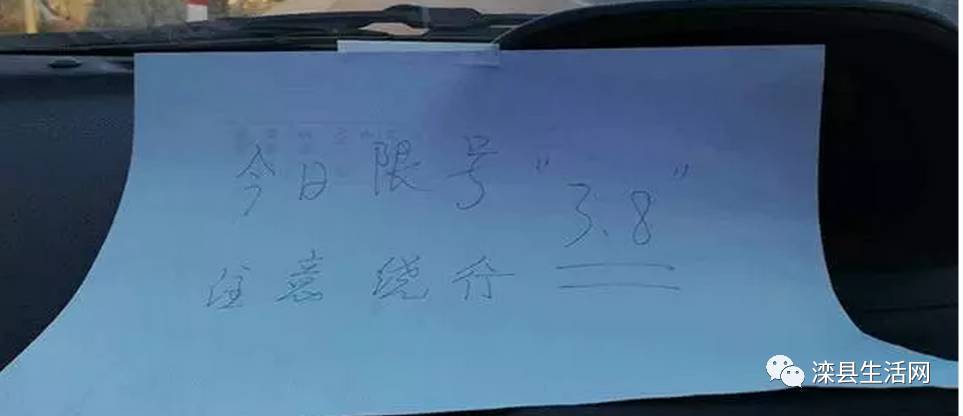 今日限号"3、8"
注意绕行
滦县生活网